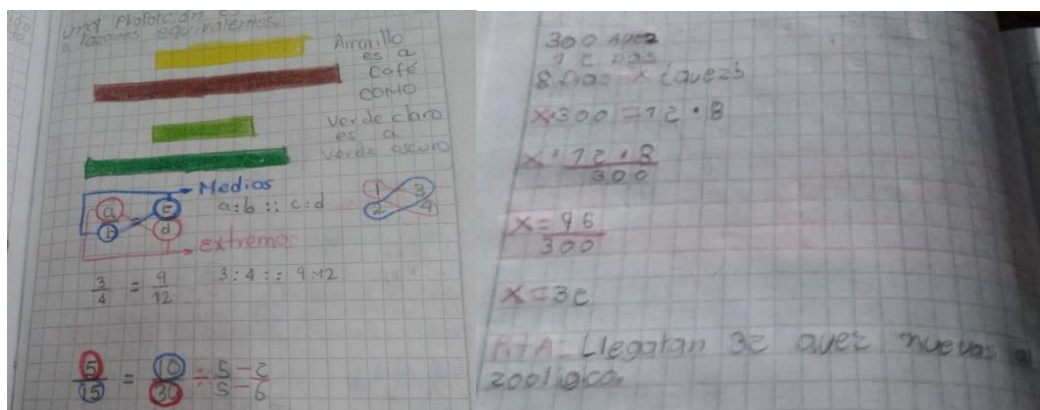 una Proporción es
a razones equivalentes.
Amarillo
es a
café
como
verde claro
es a
verde oscuro
Medios
a:b :: c:d
a = c
b d
extremos
1 3
2 4
3/4 = 9/12 3:4 :: 9:12
5/15 = 10/30 ÷ 5-2/5-6
300 avez
12 días
8 días x ¿avez?
x·300 = 12·8
x · 12·8/300
x = 96/300
x = 32
RTA: Llegaran 32 avez nuevas al
zoologico.